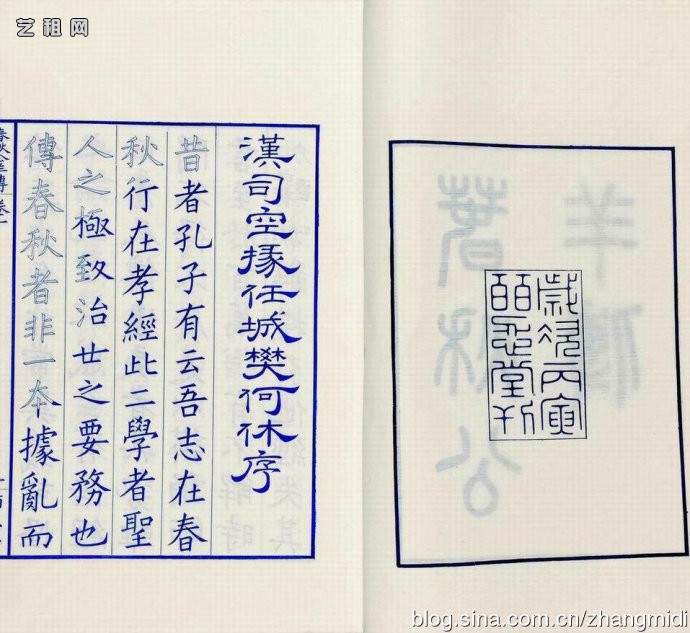 艺租网
歲次丙寅
百忍堂刊
漢司空掾任城樊何休序
昔者孔子有云吾志在春
秋行在孝經此二學者聖
人之極致治世之要務也
傳春秋者非一本據亂而
blog.sina.com.cn/zhangmidi